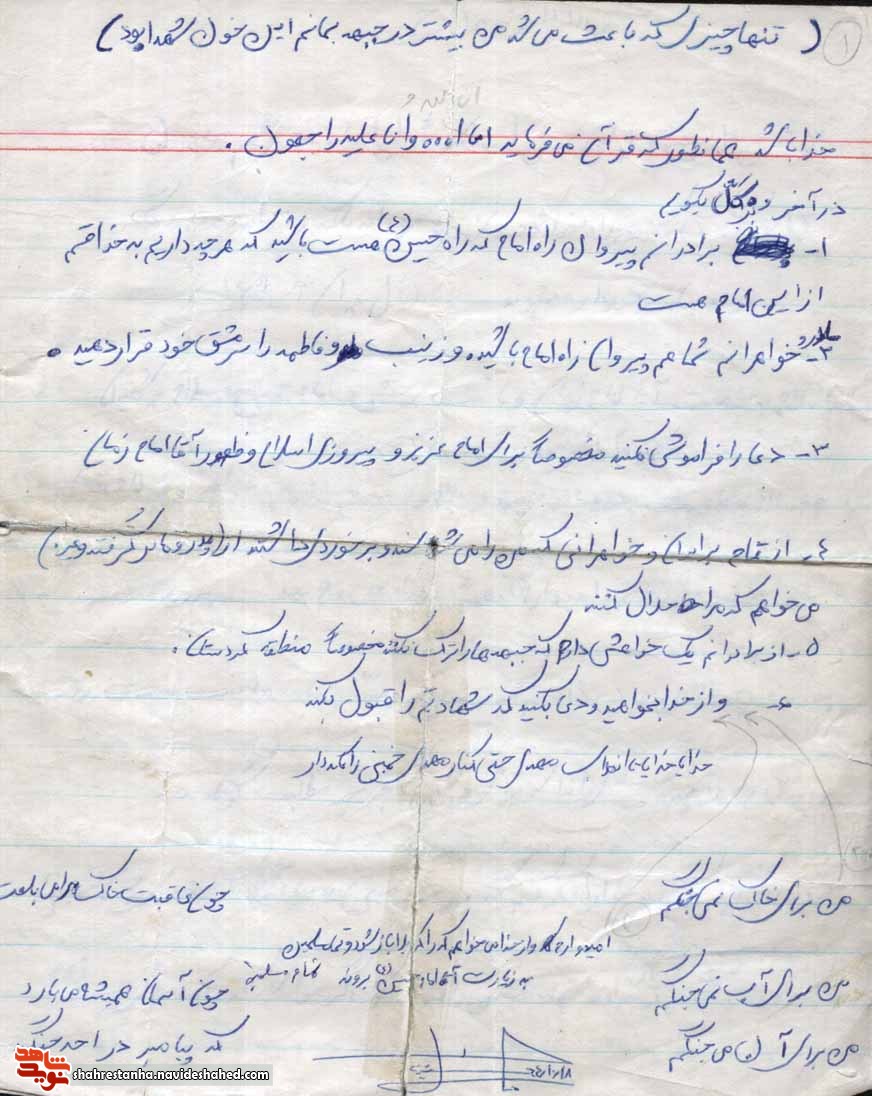 ( تنها چیزی که باعث می شد من بیشتر در جبهه بمانم این خون شهدا بود )
۱
خدا باشد همانطور که قرآن می فرماید انا لله و انا علیه راجعون .
در آخر وبگویم
۱- برادرانم پیروان راه امام که راه حسین (ع) هست باشید که هر چه داریم به خدا قسم
از این امام هست
۲- خواهرانم شما هم پیروان راه امام باشید و زینب و فاطمه را سرمشق خود قرار دهید .
۳- دعا را فراموش نکنید مخصوصاً برای امام عزیز و پیروزی اسلام و ظهور آقا امام زمان
۴- از تمام برادران و خواهرانی که من را می شناسند و برخوردی داشتند از
می خواهم که مرا حلال کنند
۵- از برادرانم یک خواهش دارم که جبهه ها را ترک نکنند مخصوصاً منطقه کردستان .
۶- و از خدا بخواهید و دعا بکنید که شهادتم را قبول بکند
خدایا خدایا تا انقلاب مهدی حتی کنار مهدی خمینی را نگهدار
من برای خاک نمی جنگم چون عاقبت خاک
امیدوارم و از خدا می خواهم که راه کربلا باز شود و
به زیارت آقا امام حسین (ع) بروند تمام مسلمین
من برای آب نمی جنگم چون آسمان همیشه می بارد
من برای آن می جنگم که پیامبر در احد جنگید
نوید شاهد
shahrestanha.navideshahed.com